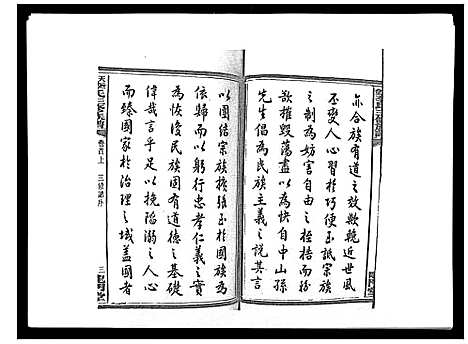 亦合族有道之效歟輓近世風
丕變人心習於巧便至詆宗族
之制為妨害自由之桎梏而紛
欲摧毀蕩盡以為快自中山孫
先生倡為民族主義之說其言
以團結宗族擴張至於國族為
依歸而以躬行忠孝仁義之實
為恢復民族固有道德之基礎
偉哉言乎足以挽陷溺之人心
而臻國家於治理之域蓋國者
卷首上
三修譜序
三